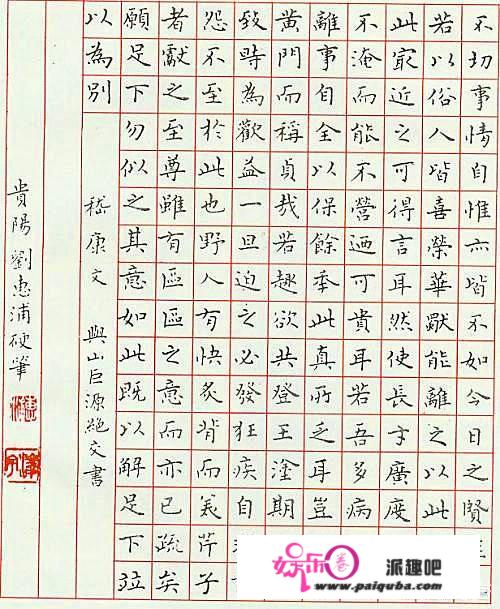 不切事情自惟亦皆不如今日之賢
若以俗人皆喜榮華獨能離之以此
此冣近之可得言耳然使長才廣度
不淹而能不營迺可貴耳若吾多病
離事自全以保餘年此真所乏耳豈
黃門而稱貞哉若趣欲共登王塗期
致時為歡益一旦迫之必發狂疾自
怨不至於此也野人有快炙背而美芹子
者獻之至尊雖有區區之意而亦已疏矣
願足下勿似之其意如此既以解足下竝
以為別
嵇康文 與山巨源絕交書
貴陽劉惠浦硬筆
派趣吧
www.paiquba.com